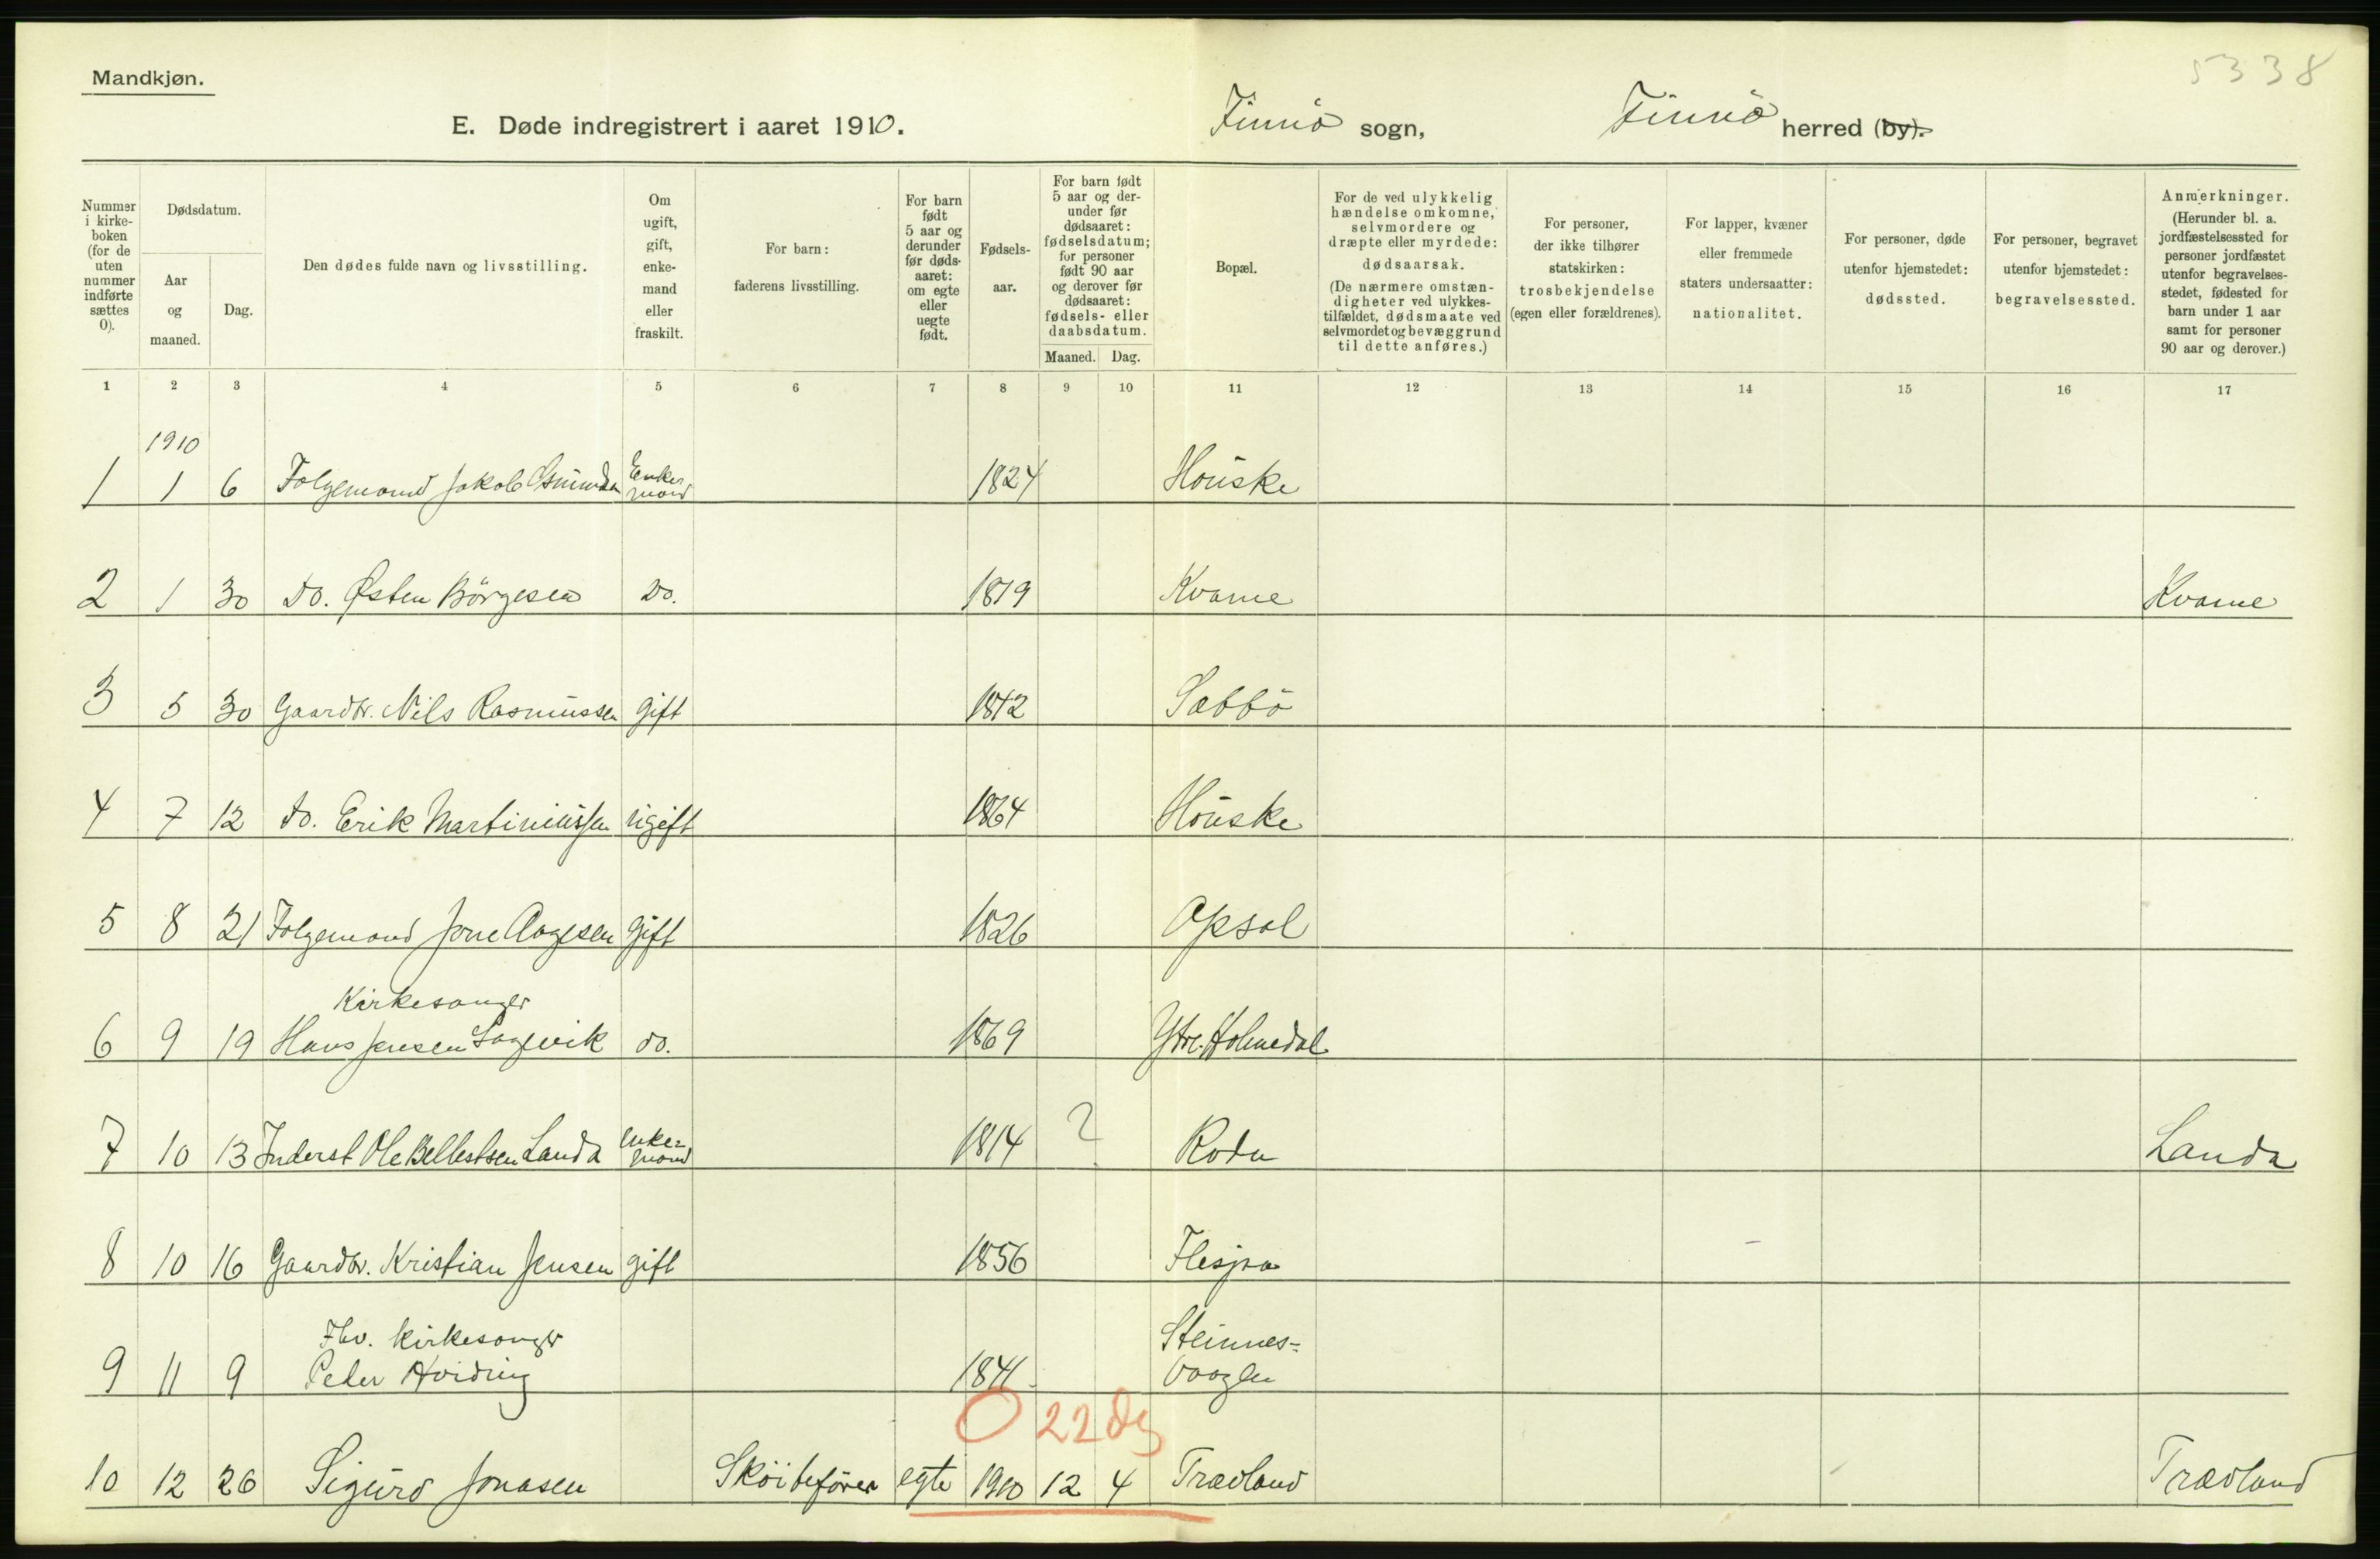 5338
Mandkjøn.
E. Døde indregistrert i aaret 1910. Finnö sogn, Finnö herred (by).
Nummer i kirkeboken (for de uten nummer indførte sættes 0).
Dødsdatum.
Aar og maaned.
Dag.
Den dødes fulde navn og livsstilling.
Om ugift, gift, enkemand eller fraskilt.
For barn: faderens livsstilling.
For barn født 5 aar og derunder før dødsaaret: om egte eller uegte født.
Fødselsaar.
For barn født 5 aar og derunder før dødsaaret: fødselsdatum; for personer født 90 aar og derover før dødsaaret: fødsels- eller daabsdatum.
Maaned. Dag.
Bopæl.
For de ved ulykkelig hændelse omkomne, selvmordere og dræpte eller myrdede: dødsaarsak. (De nærmere omstændigheter ved ulykkestilfældet, dødsmaate ved selvmordet og bevæggrund til dette anføres.)
For personer, der ikke tilhører statskirken: trosbekjendelse (egen eller forældrenes).
For lapper, kvæner eller fremmede staters undersaatter: nationalitet.
For personer, døde utenfor hjemstedet: dødssted.
For personer, begravet utenfor hjemstedet: begravelsessted.
Anmerkninger. (Herunder bl. a. jordfæstelsessted for personer jordfæstet utenfor begravelsesstedet, fødested for barn under 1 aar samt for personer 90 aar og derover.)
1 2 3 4 5 6 7 8 9 10 11 12 13 14 15 16 17
1910
1 1 6 Folgemand Jakob Enkemand 1824 Houske
2 1 30 do. Østen Börgesen do. 1819 Kvame Kvame
3 5 30 Gaardbr. Nils Rasmussen gift 1842 Sæbbö
4 7 12 do. Erik Martiniussen ugift 1864 Houske
5 8 21 Folgemand Jone Aagesen gift 1826 Opsal
Kirkesanger
6 9 19 Hans Jensen do. 1869 Ytre-Holmedal
7 10 13 Inderst Ole Landa Enkemand 1814 ? Roda Landa
8 10 16 Gaardbr. Kristian Jensen gift 1856 Flesjaa
Fhv. Kirkesanger Steinnes-
9 11 9 Peder Hviding 1841 vaagen
0 22 dg
10 12 26 Sigurd Jonasen Sköiteförer egte 1910 12 4 Trædland Trædland